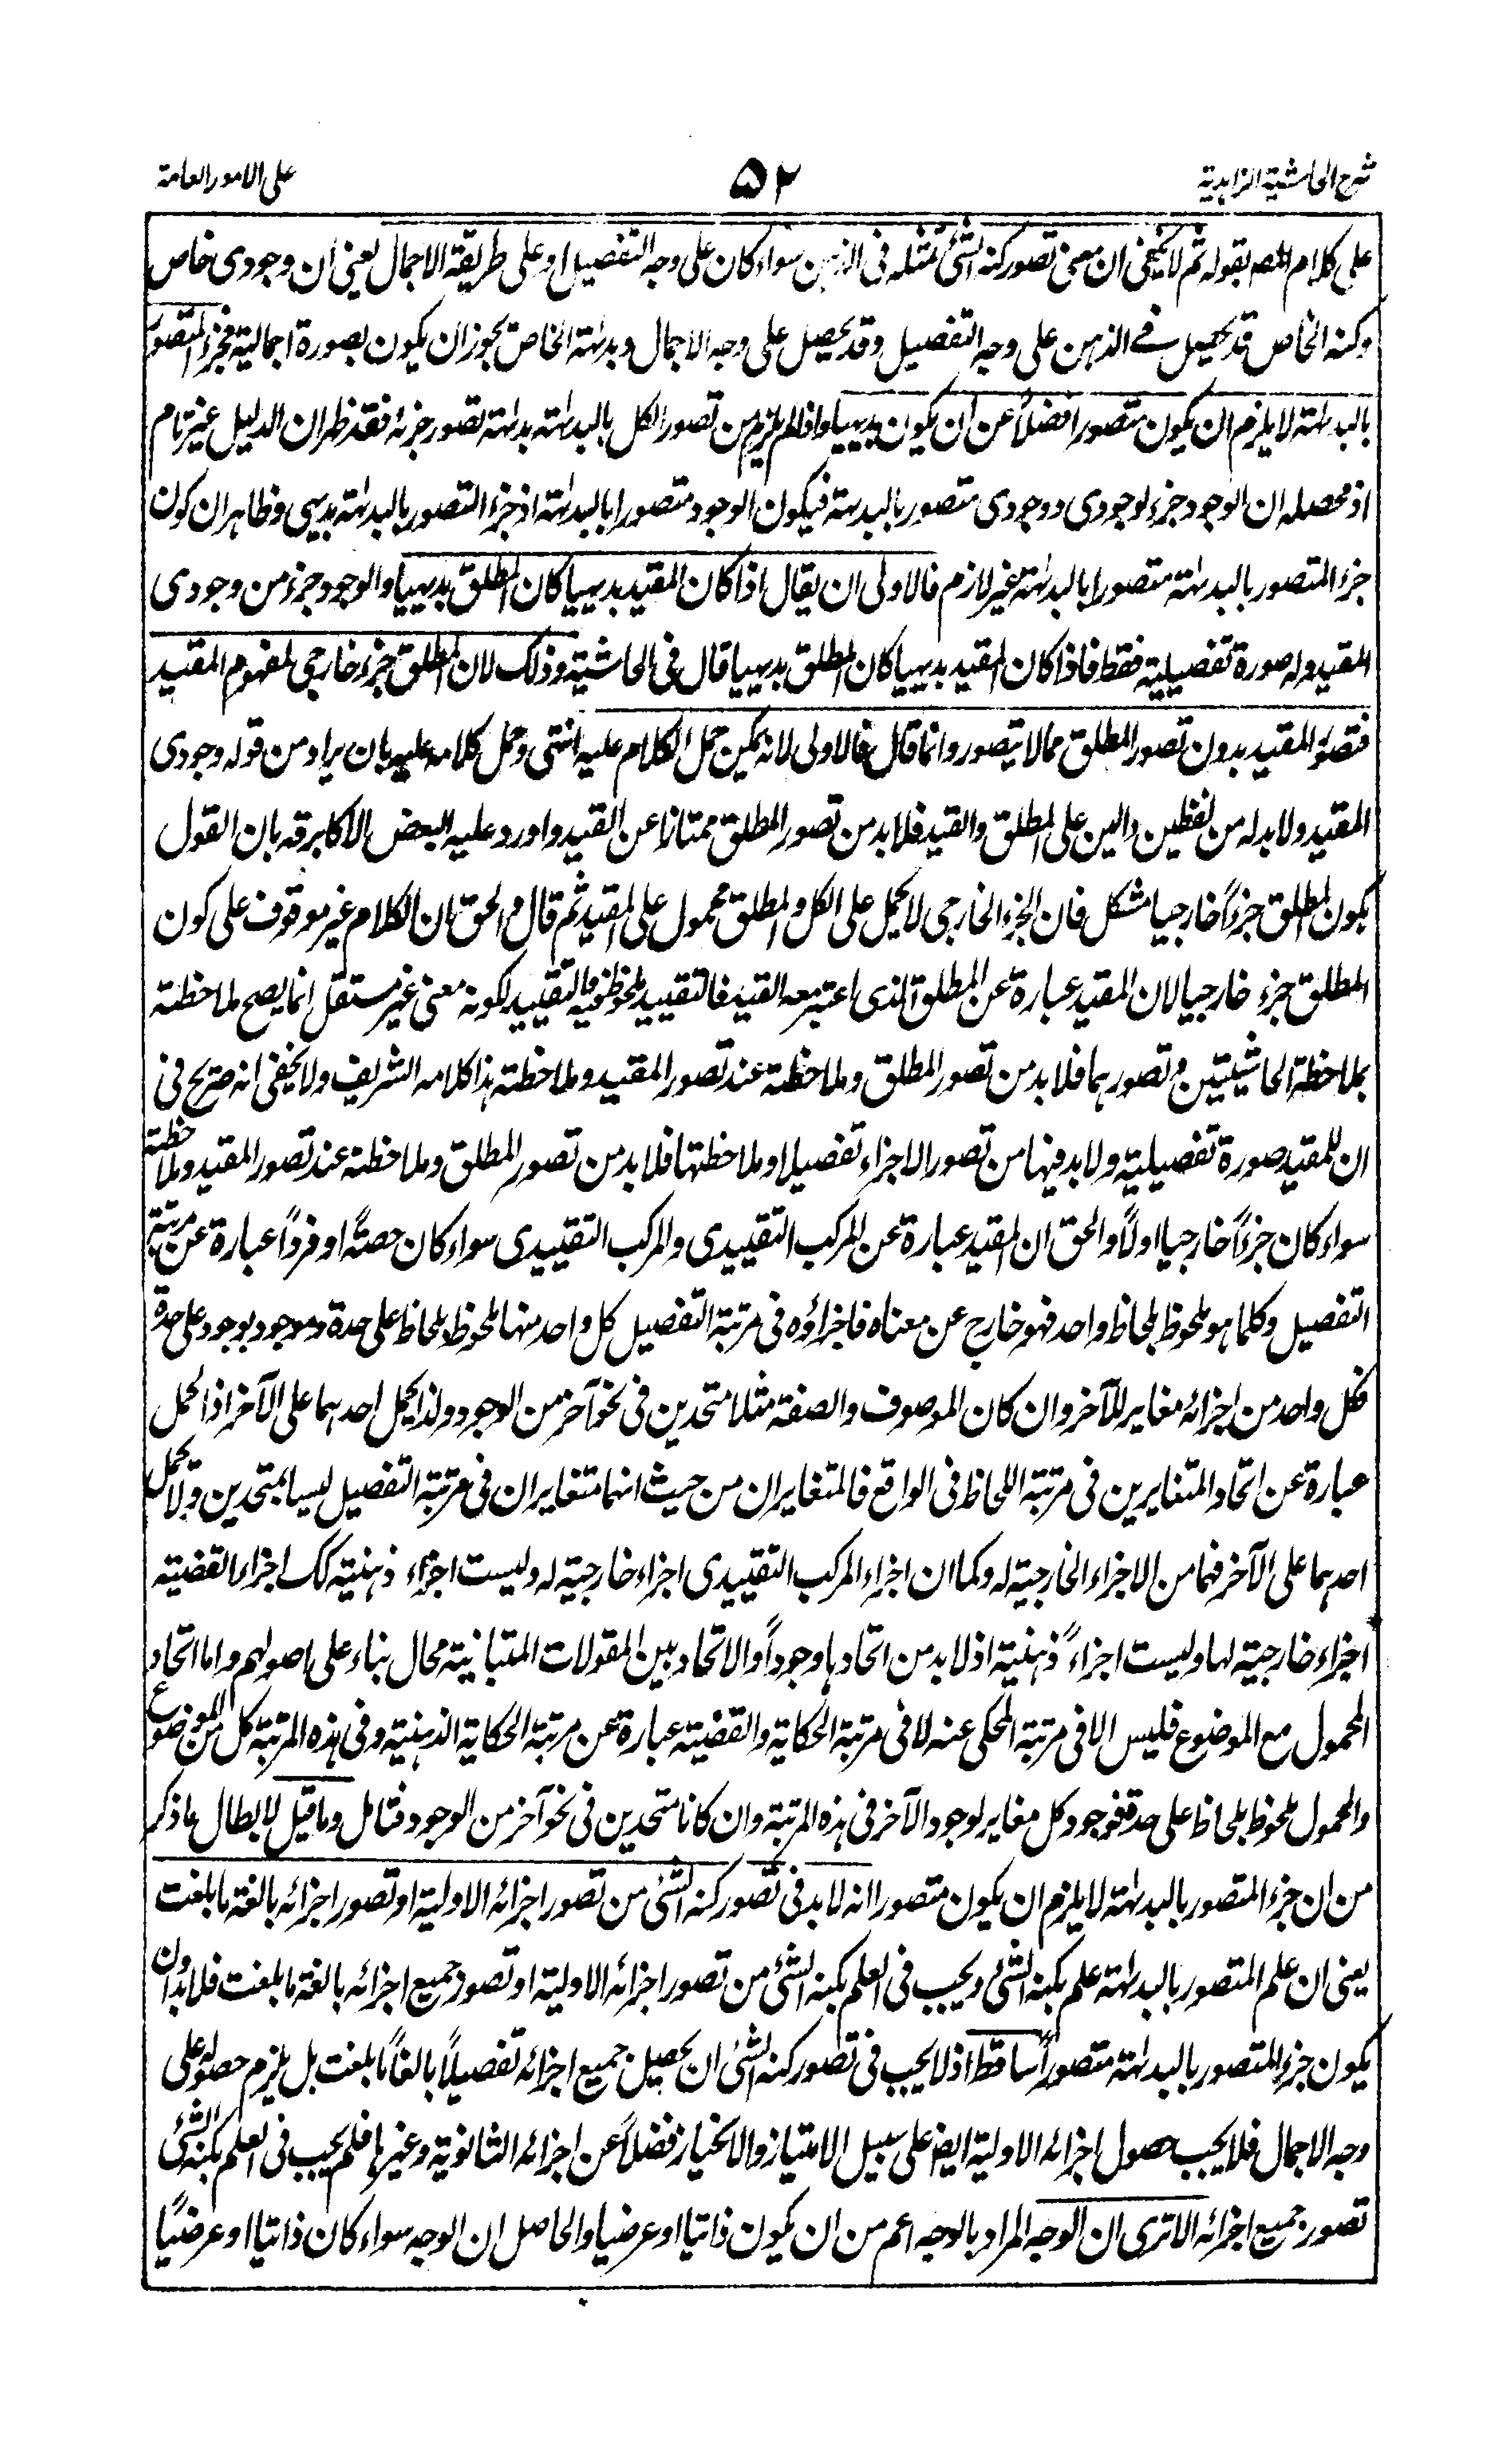 شرح الحاشية الزاهدية
۵۲
على الامور العامة
على كلام المصـ بقوله ثم لا يخفى ان معنى تصور كنه الشئ تمثله فى الذهن سواء كان على وجه التفصيل او على طريقة الاجمال يعنى ان وجودى خاص
وكنه الخاص قد يحصل فے الذهن على وجه التفصيل وقد يحصل على وجه الاجمال وبداهة الخاص يجوز ان يكون بصورة اجمالية فجزء المتصور
بالبداهة لا يلزم ان يكون متصورا فضلاً عن ان يكون بديهيا واذا لم يلزم من تصور الكل بالبداهة بداهة تصور جزئه فقد ظهر ان الدليل غير تام
اذ محصله ان الوجود جزء لوجودى ووجودى متصور بالبداهة فيكون الوجود متصورا بالبداهة اذ جزء المتصور بالبداهة بديهى وظاهر ان كون
جزء المتصور بالبداهة متصورا بالبداهة غير لازم فالاولى ان يقال اذا كان المقيد بديهيا كان المطلق بديهيا والوجود جزء من وجودى
المقيد وله صورة تفصيلية فقط فاذا كان المقيد بديهيا كان المطلق بديهيا قال فى الحاشية وذلك لان المطلق جزء خارجى لمفهوم المقيد
فتصور المقيد بدون تصور المطلق مما لا يتصور وانما قال فالاولى لانه يمكن حمل الكلام عليه انتهى وحمل كلامه عليه بان يراد من قوله وجودى
المقيد ولا بد له من لفظين دالين على المطلق والقيد فلا بد من تصور المطلق ممتازا عن القيد واورد عليه البعض الاكابر قه بان القول
بكون المطلق جزءاً خارجيا مشكل فان الجزء الخارجى لا يحمل على الكل والمطلق محمول على المقيد ثم قال والحق ان الكلام غير موقوف على كون
المطلق جزء خارجيا لان المقيد عبارة عن المطلق الذى اعتبر معه القيد فالتقييد ملحوظ فيه والتقييد لكونه معنى غير مستقل انما يصح ملاحظته
بملاحظة الحاشيتين وتصورهما فلا بد من تصور المطلق وملاحظته عند تصور المقيد وملاحظته هذا كلامه الشريف ولا يخفى انه صريح فى
ان للمقيد صورة تفصيلية ولا بد فيها من تصور الاجزاء تفصيلا وملاحظتها فلا بد من تصور المطلق وملاحظته عند تصور المقيد وملاحظته
سواء كان جزءاً خارجيا اولاً والحق ان المقيد عبارة عن المركب التقييدى والمركب التقييدى سواء كان حصةً او فرداً عبارة عن مرتبة
التفصيل وكلما هو ملحوظ بلحاظ واحد فهو خارج عن معناه فاجزاؤه فى مرتبة التفصيل كل واحد منها ملحوظ بلحاظ على حدة وموجود بوجود على حدة
فكل واحد من اجزائه مغاير للآخر وان كان الموصوف والصفة مثلا متحدين فى نحو آخر من الوجود ولذا يحمل احدهما على الآخر اذ الحمل
عبارة عن اتحاد المتغايرين فى مرتبة اللحاظ فى الواقع فالمتغايران من حيث انهما متغايران فى مرتبة التفصيل ليسا بمتحدين ولا يحمل
احدهما على الآخر فهما من الاجزاء الخارجية له وكما ان اجزاء المركب التقييدى اجزاء خارجية له وليست اجزاء ذهنية كك اجزاء القضية
اجزاء خارجية لها وليست اجزاءً ذهنية اذ لا بد من اتحادها وجوداً والاتحاد بين المقولات المتباينة محال بناء على اصولهم واما اتحاد
المحمول مع الموضوع فليس الا فى مرتبة المحكى عنه لا فى مرتبة الحكاية والقضية عبارة عن مرتبة الحكاية الذهنية وفى هذه المرتبة كل من الموضوع
والمحمول ملحوظ بلحاظ على حدة فوجود كل مغاير لوجود الآخر فى هذه المرتبة وان كانا متحدين فى نحو آخر من الوجود فتامل وما قيل لابطال ما ذكر
من ان جزء المتصور بالبداهة لا يلزم ان يكون متصورا انه لا بد فى تصور كنه الشئ من تصور اجزائه الاولية او تصور اجزائه بالغة ما بلغت
يعنى ان علم المتصور بالبداهة علم بكنه الشئ ويجب فى العلم بكنه الشئ من تصور اجزائه الاولية او تصور جميع اجزائه بالغة ما بلغت فلا بد ان
يكون جزء المتصور بالبداهة متصوراً ساقط اذ لا يجب فى تصور كنه الشئ ان يحصل جميع اجزائه تفصيلاً بالغاً ما بلغت بل يلزم حصوله على
وجه الاجمال فلا يجب حصول اجزائه الاولية ايضا على سبيل الامتياز والانحياز فضلاً عن اجزائه الثانوية وغيرها فلم يجب فى العلم بكنه الشئ
تصور جميع اجزائه الا ترى ان الوجه المراد بالوجه اعم من ان يكون ذاتيا او عرضيا والحاصل ان الوجه سواء كان ذاتيا او عرضيًا